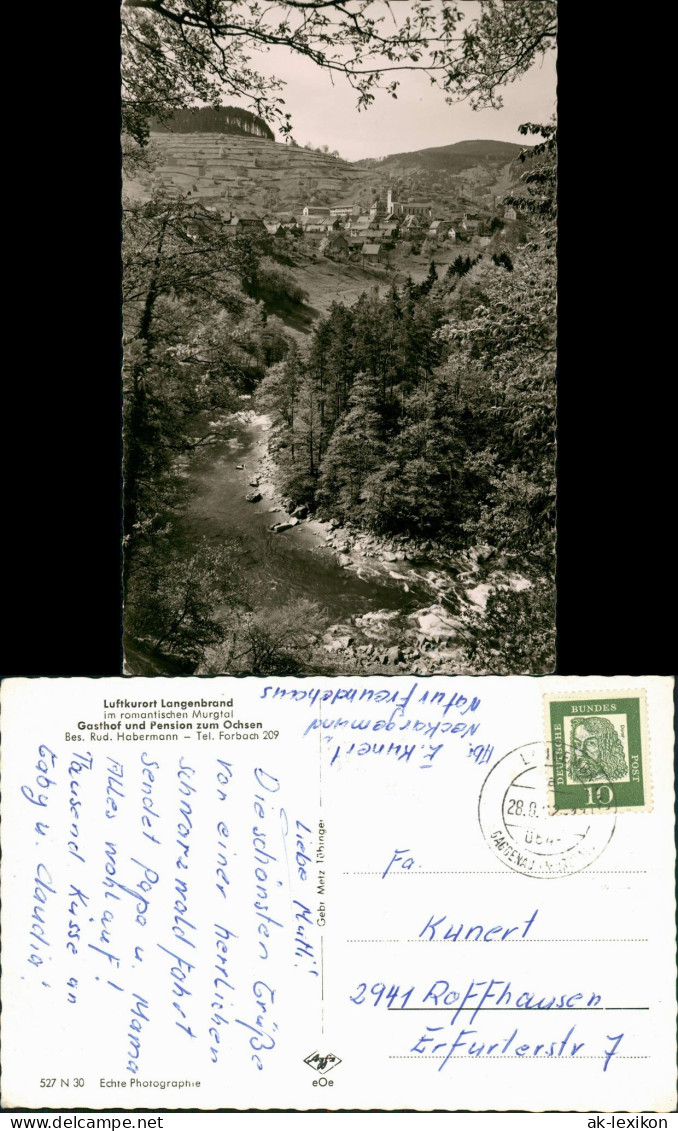 Luftkurort Langenbrand
im romantischen Murgtal
Gasthof und Pension zum Ochsen
Bes. Rud. Habermann – Tel. Forbach 209
Liebe Mutti!
Die schönsten Grüße
von einer herrlichen
Schwarzwaldfahrt
sendet Papa u. Mama
Alles wohlauf!
Tausend Küsse an
Gaby u. Claudia!
E. Kunert,
Neckargemünd
Naturfreundehaus
Gebr. Metz Tübingen
DEUTSCHE BUNDES POST
10
28.8.
GAGGENAU
Fa.
Kunert
2941 Roffhausen
Erfurterstr 7
Agfa
eOe
527 N 30 Echte Photographie
ak-lexikon